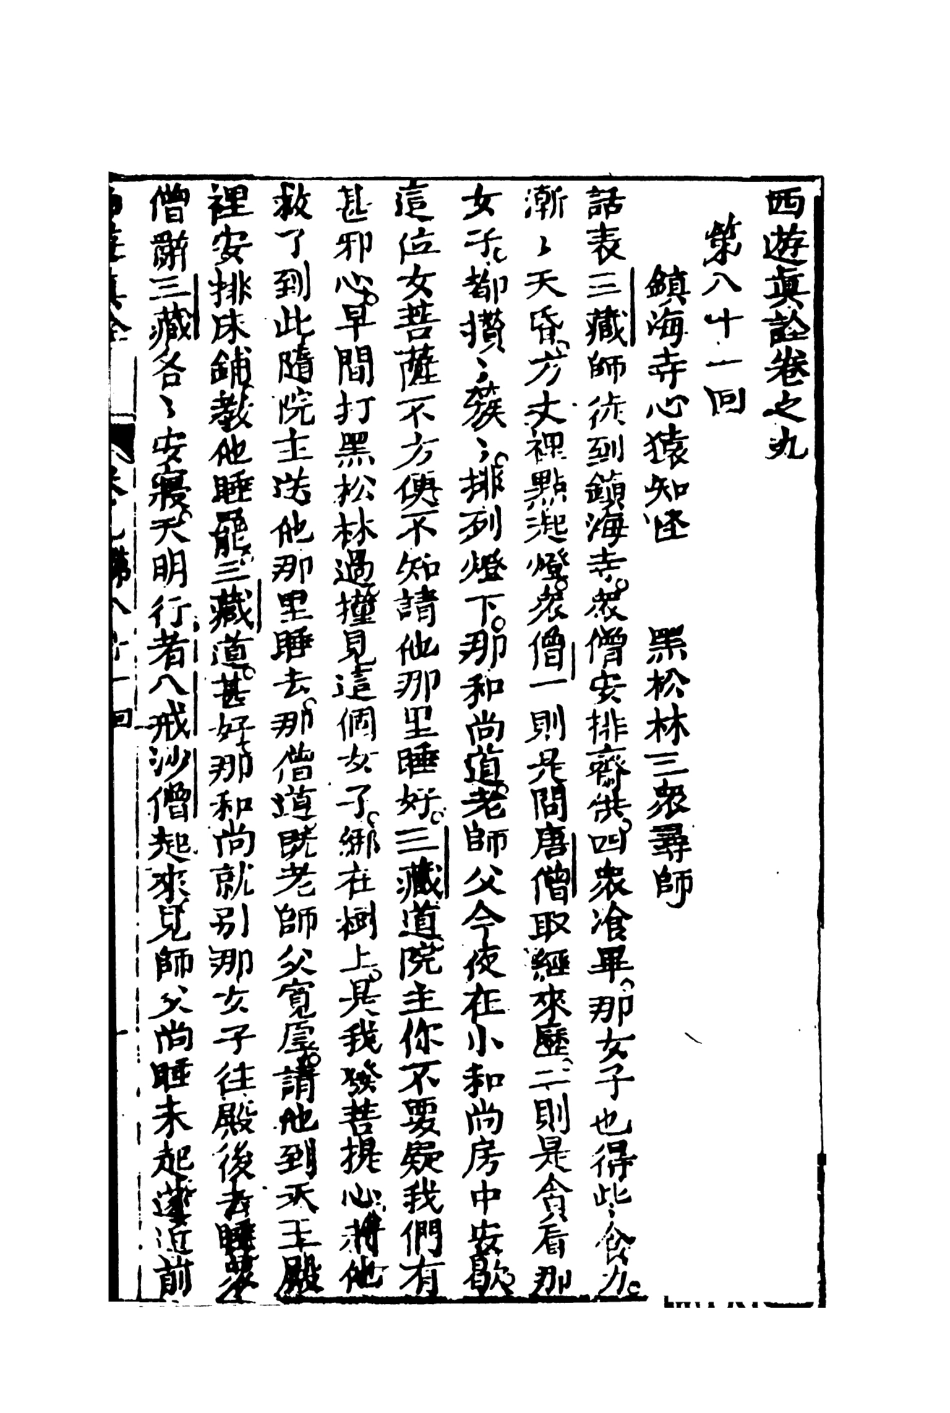 西遊真詮卷之九
第八十一回
鎮海寺心猿知怪　黑松林三衆尋師
話表三藏師徒到鎮海寺。衆僧安排齋供。四衆飡畢。那女子也得些食力。
漸〻天昏。方丈裡點起燈。衆僧一則是問唐僧取經來歷。二則是貪看那
女子。都攅〻簇〻。排列燈下。那和尚道。老師父今夜在小和尚房中安歇。
這位女菩薩不方便。不知請他那里睡好。三藏道院主你不要疑我們有
甚邪心。早間打黑松林過撞見這個女子。綁在樹上。是我發菩提心。將他
救了到此隨院主送他那里睡去。那僧道既老師父寬厚。請他到天王殿
裡安排床鋪教他睡罷。三藏道。甚好。那和尚就引那女子往殿後去睡。衆
僧辭三藏各〻安寢。天明行者八戒沙僧起來見師父尚睡未起。遂近前